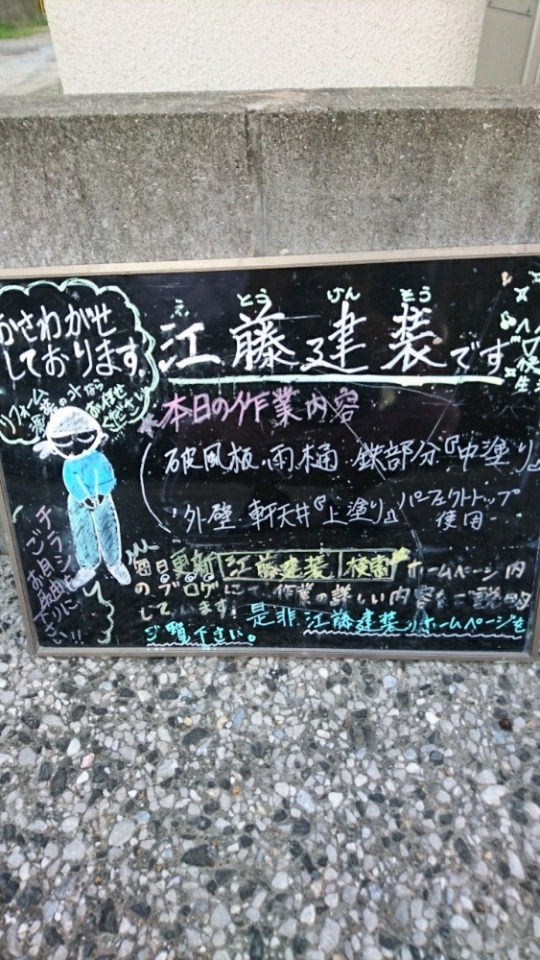 おさわがせ
しております。
リフォーム
塗装の事なら
お任せ
ください
え とう けん そう
江藤建装です
本日の作業内容
破風板・雨樋 鉄部分『中塗り』
外壁 軒天井『上塗り』パーフェクトトップ
使用
毎日更新 江藤建装 検索 ホームページ内
のブログにて、作業の詳しい内容をご説明
しています! 是非 江藤建装のホームページを
ご覧下さい。
チラシを
ご自由に
お取り下さい!!